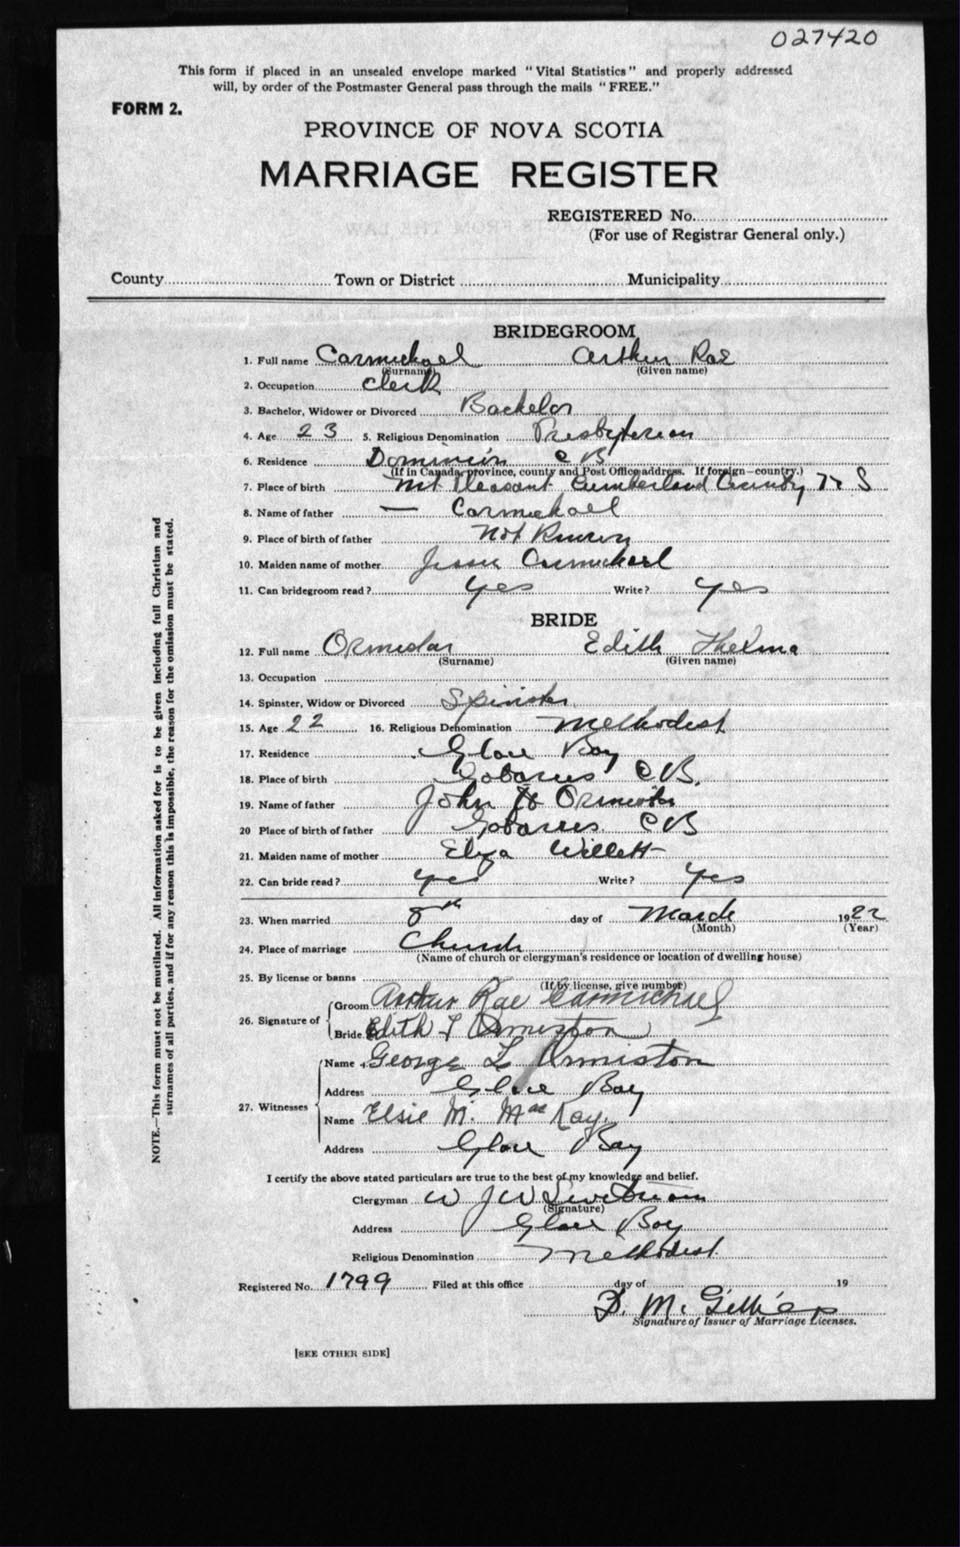 027420
This form if placed in an unsealed envelope marked "Vital Statistics" and properly addressed
will, by order of the Postmaster General pass through the mails "FREE."
FORM 2.
PROVINCE OF NOVA SCOTIA
MARRIAGE REGISTER
REGISTERED No.
(For use of Registrar General only.)
County Town or District Municipality
BRIDEGROOM
1. Full name Carmichael Arthur Rae
(Surname) (Given name)
2. Occupation Clerk
3. Bachelor, Widower or Divorced Bachelor
4. Age 23 5. Religious Denomination Presbyterian
6. Residence Dominion C B
(If in Canada, province, county and Post Office address. If foreign—country.)
7. Place of birth Mt Pleasant Cumberland County N S
8. Name of father — Carmichael
9. Place of birth of father Not Known
10. Maiden name of mother Jessie Carmichael
11. Can bridegroom read? Yes Write? Yes
BRIDE
12. Full name Ormiston Edith Thelma
(Surname) (Given name)
13. Occupation
14. Spinster, Widow or Divorced Spinster
15. Age 22 16. Religious Denomination Methodist
17. Residence Glace Bay
18. Place of birth Gabarus C B.
19. Name of father John H Ormiston
20 Place of birth of father Gabarus C B
21. Maiden name of mother Eliza Willett
22. Can bride read? Yes Write? Yes
23. When married 8th day of March 1922
(Month) (Year)
24. Place of marriage Church
(Name of church or clergyman's residence or location of dwelling house)
25. By license or banns
(If by license, give number)
26. Signature of Groom Arthur Rae Carmichael
Bride Edith T Ormiston
27. Witnesses Name George L Ormiston
Address Glace Bay
Name Elsie M. MacKay.
Address Glace Bay
I certify the above stated particulars are true to the best of my knowledge and belief.
Clergyman W J W
(Signature)
Address Glace Bay
Religious Denomination Methodist
Registered No. 1799 Filed at this office day of 19
D. M. Gillies
Signature of Issuer of Marriage Licenses.
[SEE OTHER SIDE]
NOTE.—This form must not be mutilated. All information asked for is to be given including full Christian and
surnames of all parties, and if for any reason this is impossible, the reason for the omission must be stated.